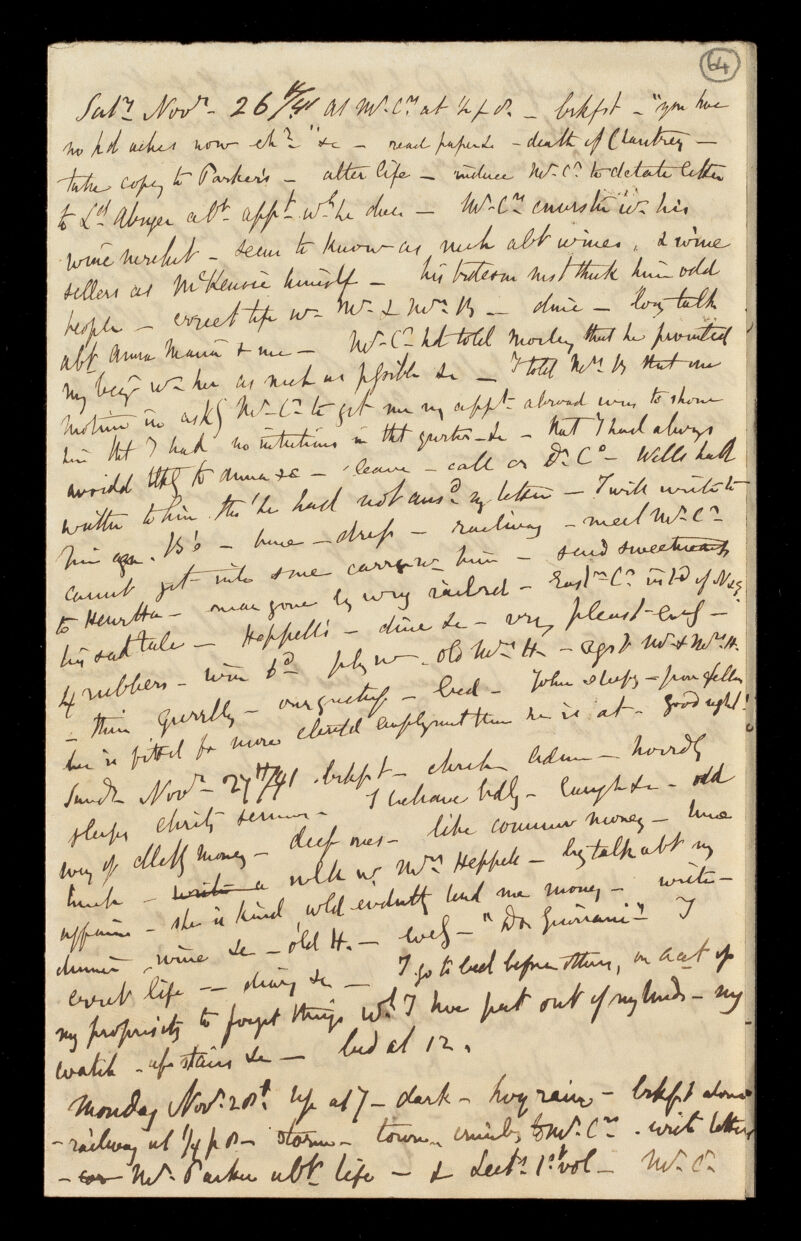 64
Saty. Novr. 26th/41 At Mr. Cs. at ½ p 8. – brkfst – "you have
no hd aches now eh?" &c – read papers &c – death of Chantrey –
take copy to Parker's – alter life – induce Mr. C. to dictate letter
to Ld. Abinger abt. appt. wh. he does – Mr. Cs. w. his
wine mercht – seems to know as much abt wines, & wine
sellers as McKensie himself – his must think him odd
people – correct life w. Mr. & Mrs. B – dine – long talk
abt Anna Maria & me – Mr. C. hd told Morley that he prevented
my being w. her as much as possible &c – I told Mrs. B that one
motive in askg Mr. C. to get me my appt. abroad was to show
him tht I had no intentions in tht quarter – &c – that I had always
avoidd tlkg to Anna &c – leave – call on Dr. Co. – Wells hadt
written to him tho' he had not ansd. my letter – I will write to
him agn. B's – home – dress – railway – meet Mr. Cs.
cannot get into same carrge w. him – send sweetmeats
to Henrtta – man gone by wrong railrd – Eastn. Cs. instd of
his sad tale – Heppell's – dine &c – very pleast eveg –
4 rubbers – win 6d. play w. old Mrs. H – agst Mr. & Mrs. H.
– thin – bed – John sleepy – poor fellow
he is fitted for more employment than he is at – Good night!
Sundy. Novr. 27th/41 brkfst – church
sleeps charity sermon – I behave bdly – laugh &c – odd
way of money – deep ones – like common money – home
lunch – write a wlk w Mrs. Heppell – lng talk abt my
affairs – she is kind, wld evidently lend me money – write –
dinner wine &c – old H. – eveg – "Don Giovanni" – I
correct life – diary &c – I go to bed before others, on acct of
my propensity to forget things wh. I have put out of my hands – my
watch – upstairs &c – bed at 12.
Monday Nov. 28t. Up at 7 – dark – hvy rain – brkfst alone
– railway at ¼ p 8 – storm – town, to Mr. Cs. – write letters
– Mr. Parker abt. life – & Lect. 1st vol – Mr. C.